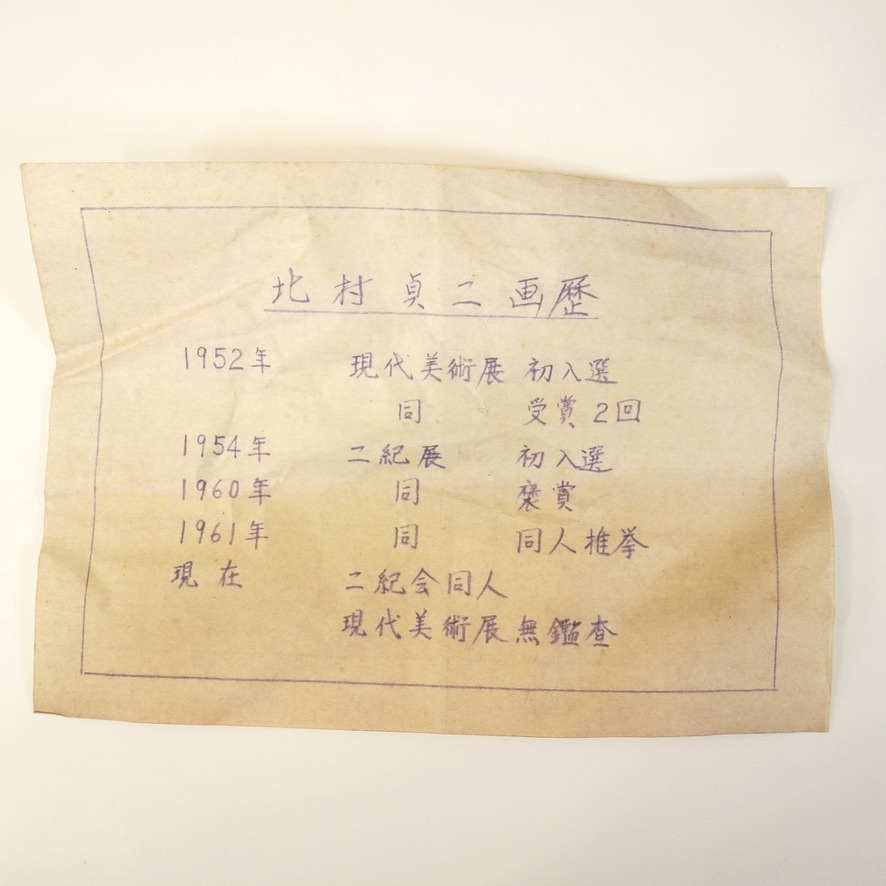 北村貞二画歴
1952年 現代美術展 初入選
同 受賞2回
1954年 二紀展 初入選
1960年 同 褒賞
1961年 同 同人推挙
現在 二紀会同人
現代美術展無鑑査